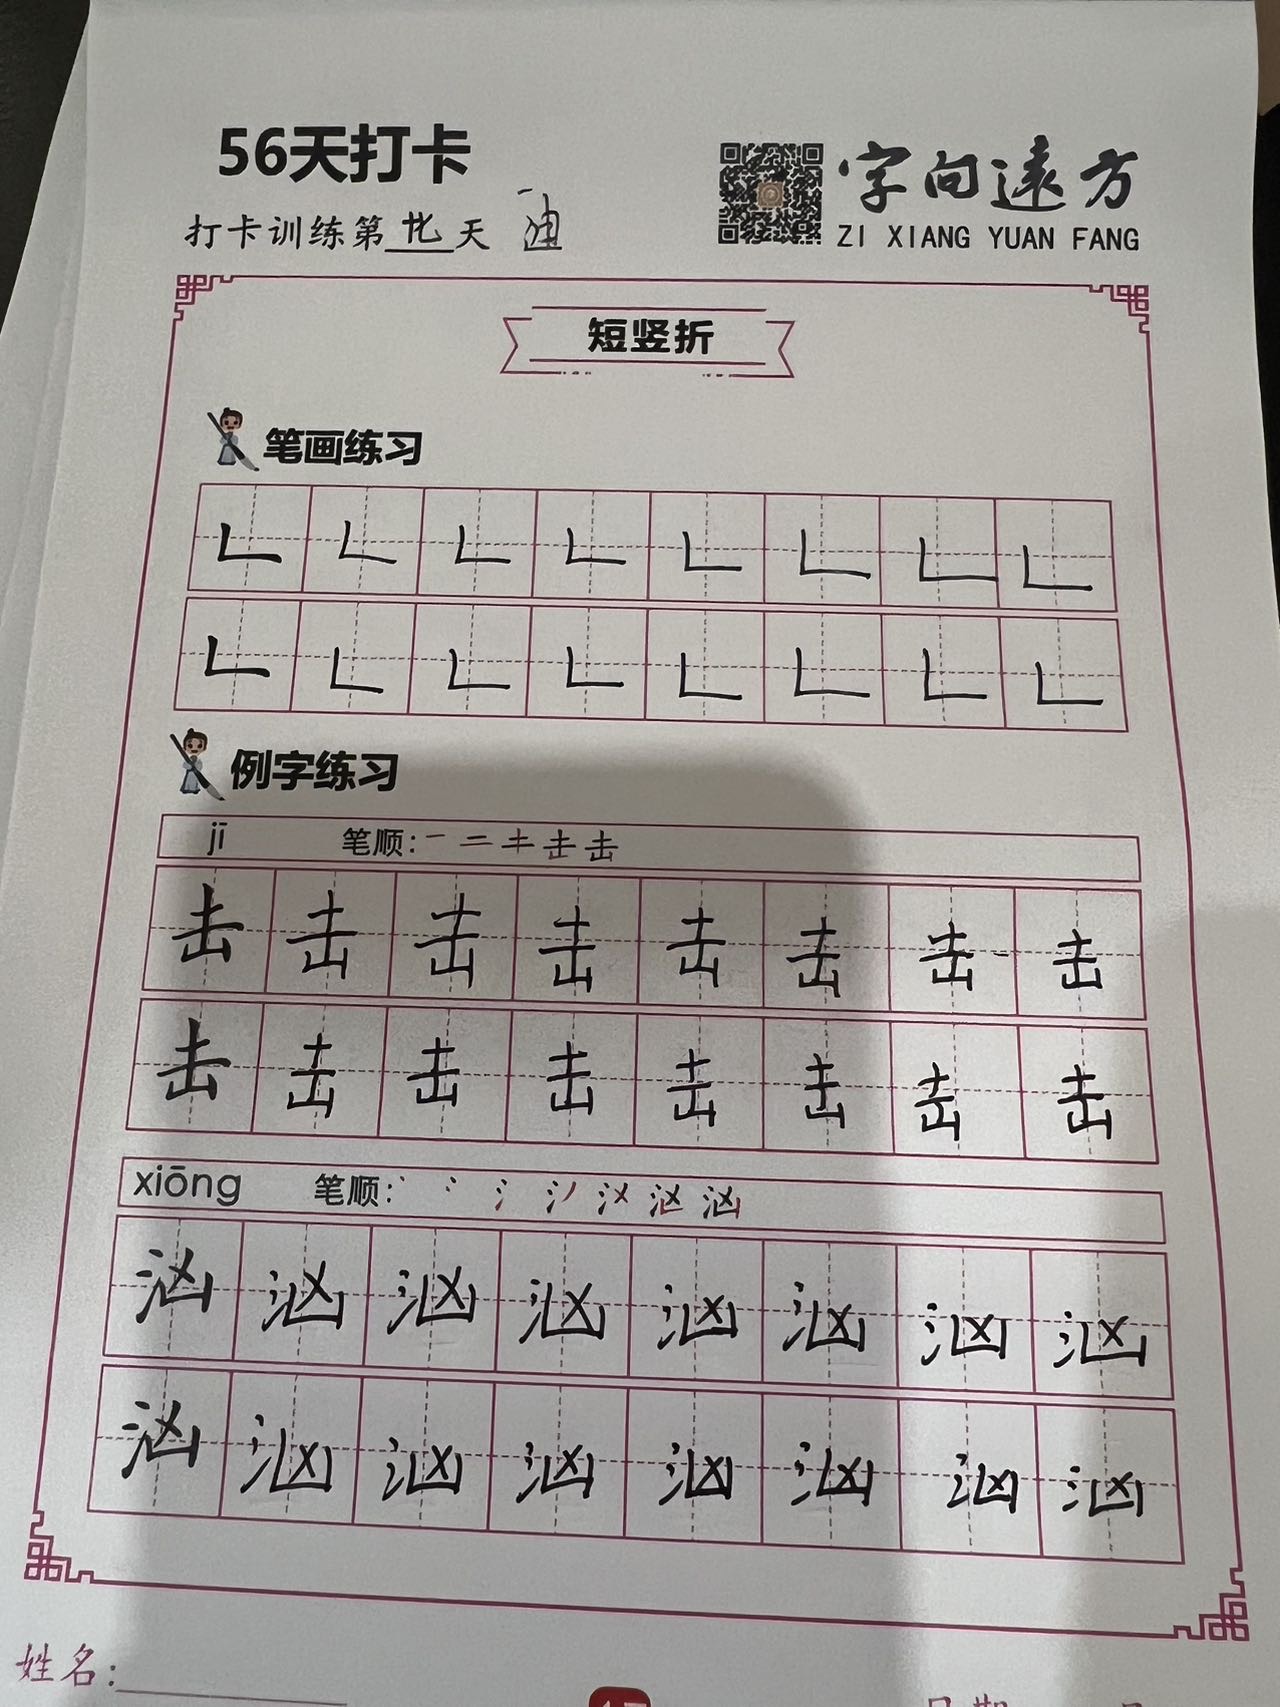 56天打卡
字向远方
打卡训练第 天
ZI XIANG YUAN FANG
短竖折
笔画练习
𠃊 𠃊 𠃊 𠃊 𠃊 𠃊 𠃊 𠃊
𠃊 𠃊 𠃊 𠃊 𠃊 𠃊 𠃊 𠃊
例字练习
jī 笔顺:一 二 キ 击 击
击 击 击 击 击 击 击 击
击 击 击 击 击 击 击 击
xiōng 笔顺:
汹 汹 汹 汹 汹 汹 汹 汹
汹 汹 汹 汹 汹 汹 汹 汹
姓名: